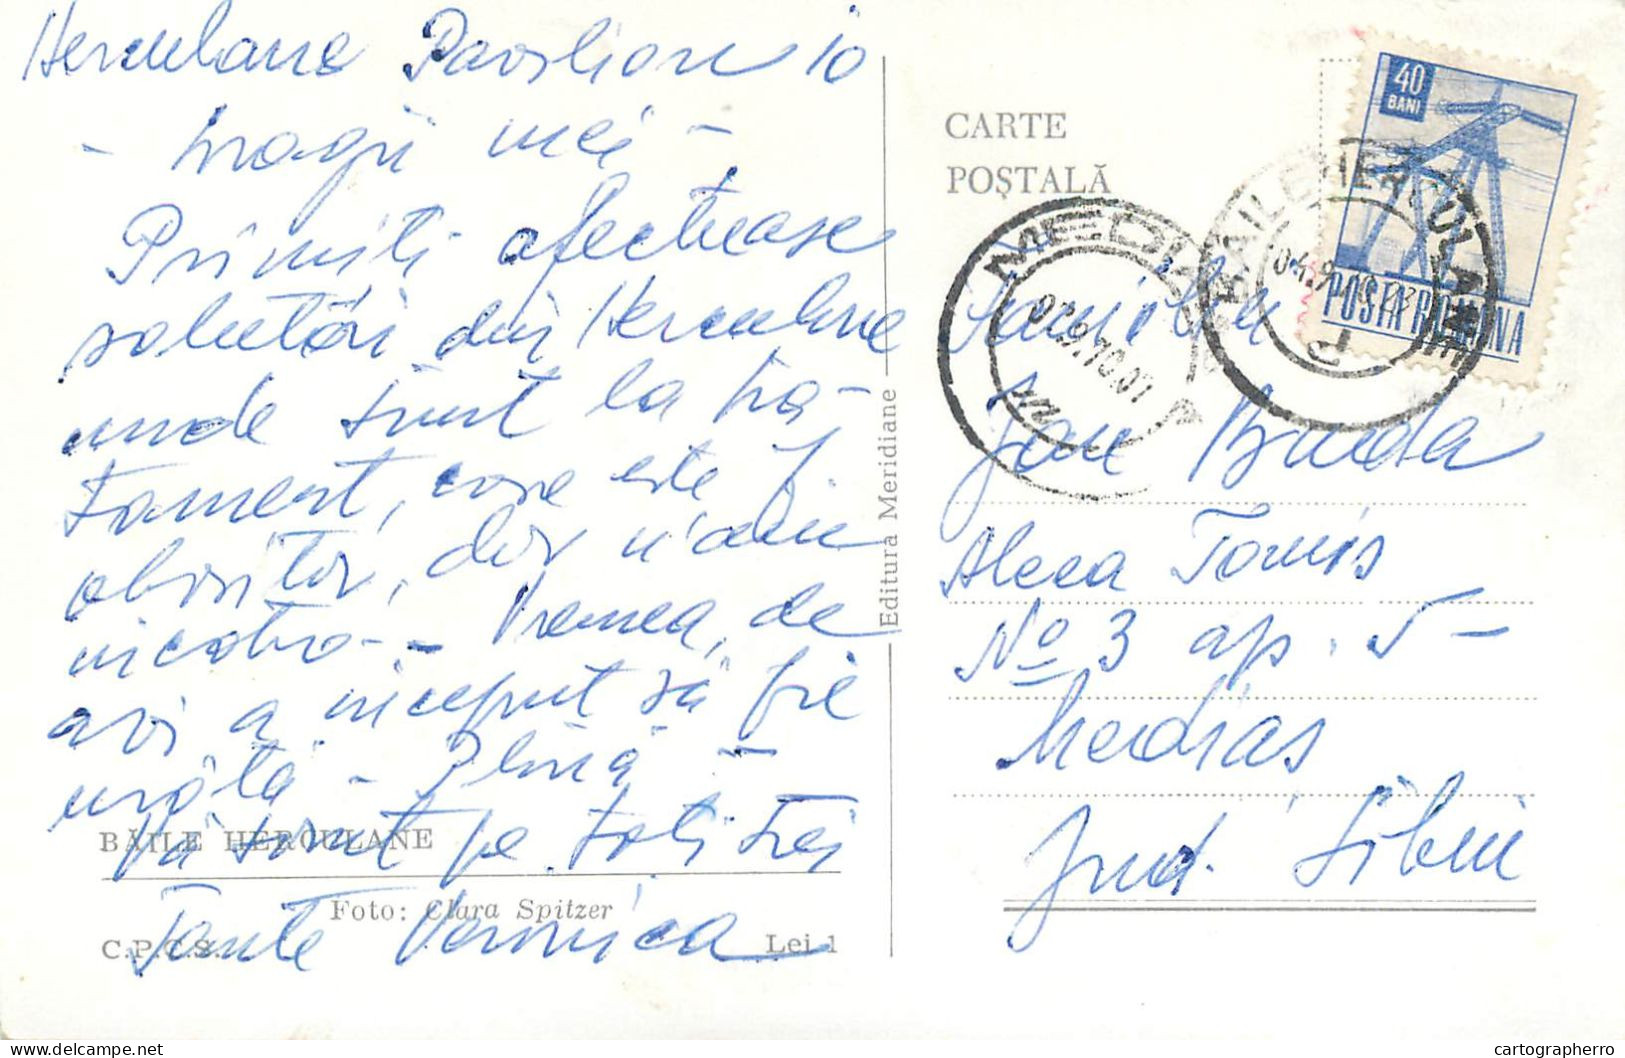 Herculane Pavilion 10
- Dragii mei -
Primiți afectuoase
salutări din Herculane
unde sunt la tra-
tament, care este f.
obositor, dar n'am
incotro - Vremea, de
azi a inceput să fie
urâtă - Plouă -
Vă sărut pe toți trei
Tante Veronica
BĂILE HERCULANE
Foto: Clara Spitzer
C.P.C.S.
Lei 1
Editura Meridiane
CARTE
POȘTALĂ
40
BANI
POSTA ROMANA
BAILE HERCULANE
MEDIAS
07.9.70.07
Familia
Jan Buda
Aleea Tomis
No 3 ap. 5 -
Medias
Jud. Sibiu
cartographerro
www.delcampe.net